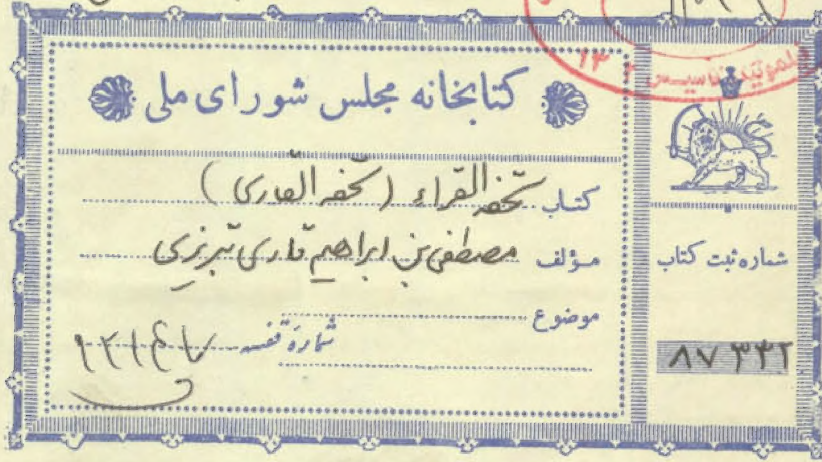 کتابخانه مجلس شورای ملی
کتاب تحفه القراء (تحفه القاری)
مؤلف مصطفی بن ابراهیم قاری تبریزی
موضوع
شماره قفسه
شماره ثبت کتاب
۸۷۳۳۲
تاسیس